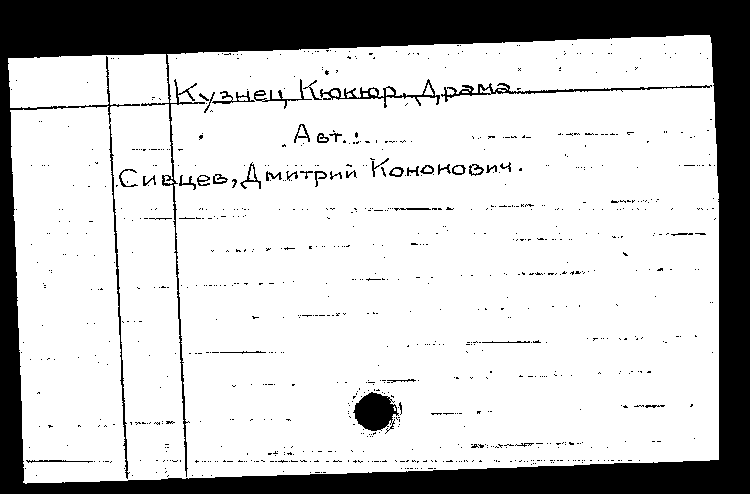 Кузнец Кюкюр. Драма.
Авт.:
Сивцев, Дмитрий Кононович.